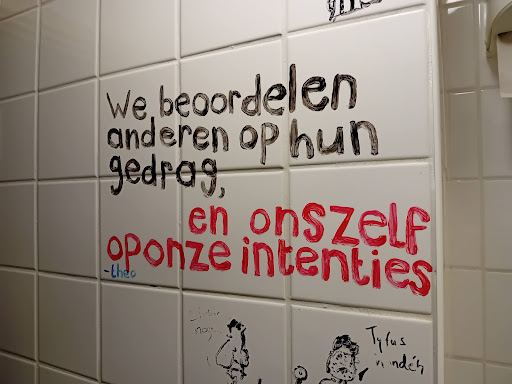 We beoordelen
anderen op hun
gedrag,
en onszelf
op onze intenties
-theo